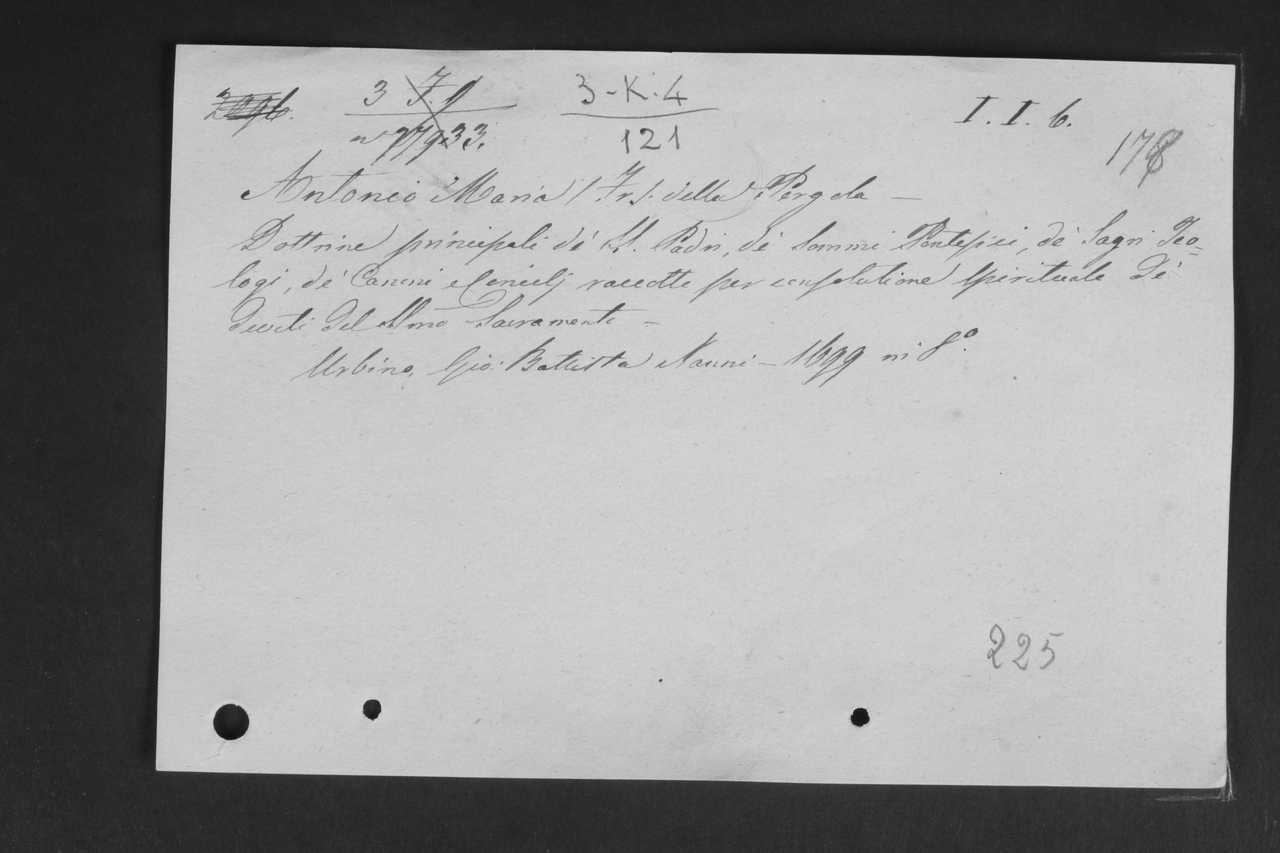 3 I. 9
3-K.4
I. I. 6.
121
178
Antonio Maria (Fr.) della Pergola —
Dottrine principali de' SS. Padri, de' Sommi Pontefici, de' Sagri Teo=
logi, de' Canoni e Concilj raccolte per consolatione spirituale de'
divoti del SSmo Sacramento —
Urbino, Gio: Battista Nanni — 1699 in 8º.
225